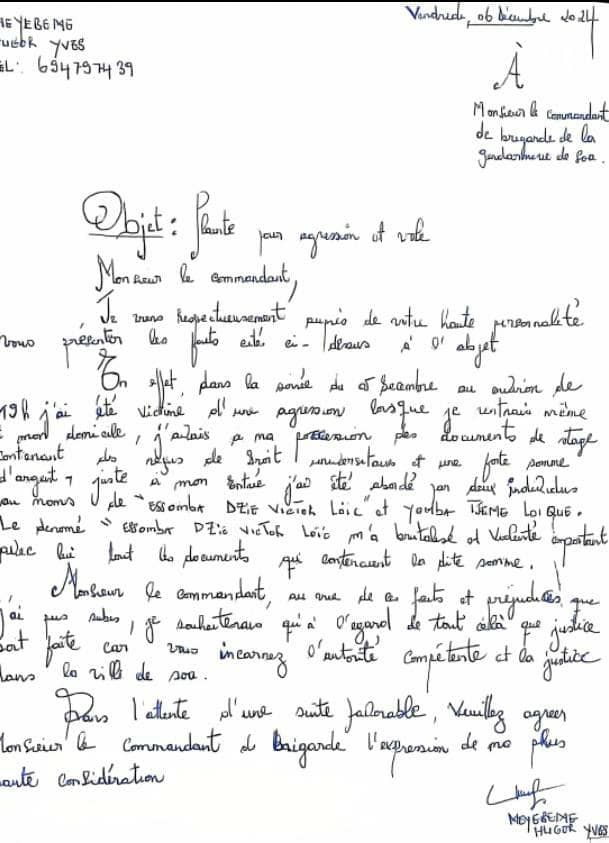 MEYEBEME
HUGOR YVES
EL: 694797439
Vendredi, 06 Décembre 2024
À
Monsieur le commandant
de brigarde de la
gendarmerie de Soa.
Objet : Plainte pour agression et vole
Monsieur le commandant,
Je viens Respectueusement auprès de votre haute personnalité
vous présenter les faits cité ci-dessus à l'objet
En effet, dans la soirée du 05 Decembre au environ de
19h j'ai été victime d'une agression lorsque je rentrais même
mon domicile, j'avais a ma possession des documents de stage
contenant des reçus de droit universitaires et une forte somme
d'argent, juste à mon entrée j'ai été abordé par deux individus
au noms de "ESSOMBA DZIE VICTOR LOÏC" et YOMBA TJEME LOIQUE.
Le denomé "ESSOMBA DZIE VICTOR LOÏC m'a brutalisé et violenté emportant
avec lui tout les documents qui contenaient la dite somme.
Monsieur le commandant, au vue de ces faits et préjudices que
j'ai pus subis, je souhaiterais qu'à l'égard de tout cela que justice
soit faite car vous incarnez l'autorité compétente et la justice
dans la ville de soa.
Dans l'attente d'une suite favorable, Veuillez agréer
Monsieur le Commandant de Brigarde l'expression de ma plus
haute considération
MEYEBEME
HUGOR YVES